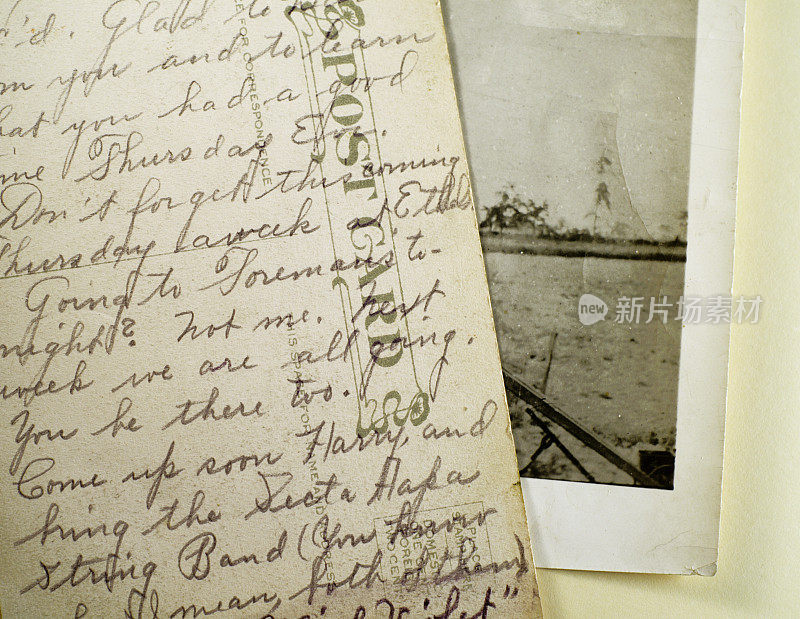 'd. Glad to
you and to learn
hat you had a good
me Thursday Eve.
Don't forget this coming
Thursday a week at Ethels
Going to Foremans to-
night? Not me. next
week we are all going.
You be there too.
Come up soon Harry, and
bring the
String Band (You know
I mean, both of them)
Violet"
POST CARD
FOR CORRESPONDENCE
new
新片场
VCG.COM